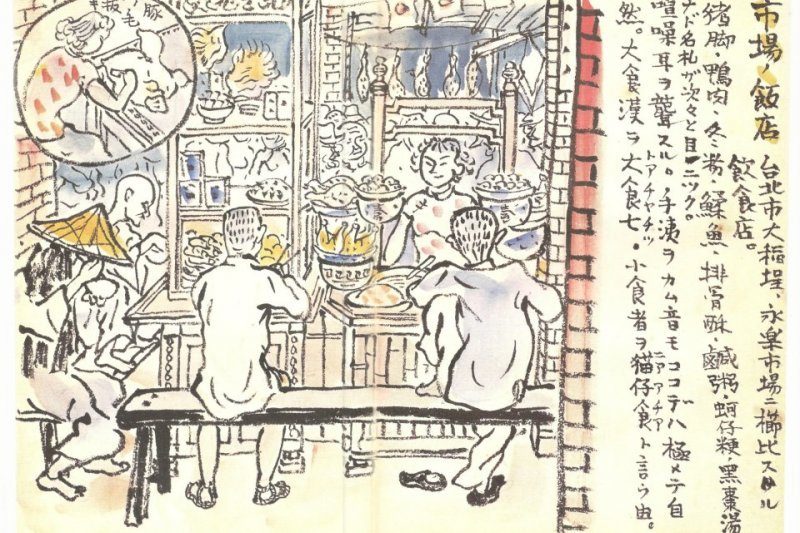 市場ノ飯店
台北市大稲埕、永楽市場ニ櫛比スル
飲食店。
猪脚・鴨肉・冬粉・鰇魚・排骨酥・鹹粥・蚵仔粳・黒棗湯
ナド名札ガ次々ト目ニツク。
喧噪耳ヲ聾スル。手洟ヲカム音モココデハ極メテ自
然。大食漢ヲ大食七・小食者ヲ猫仔食ト言ウ由。
豚ノ毛抜キ